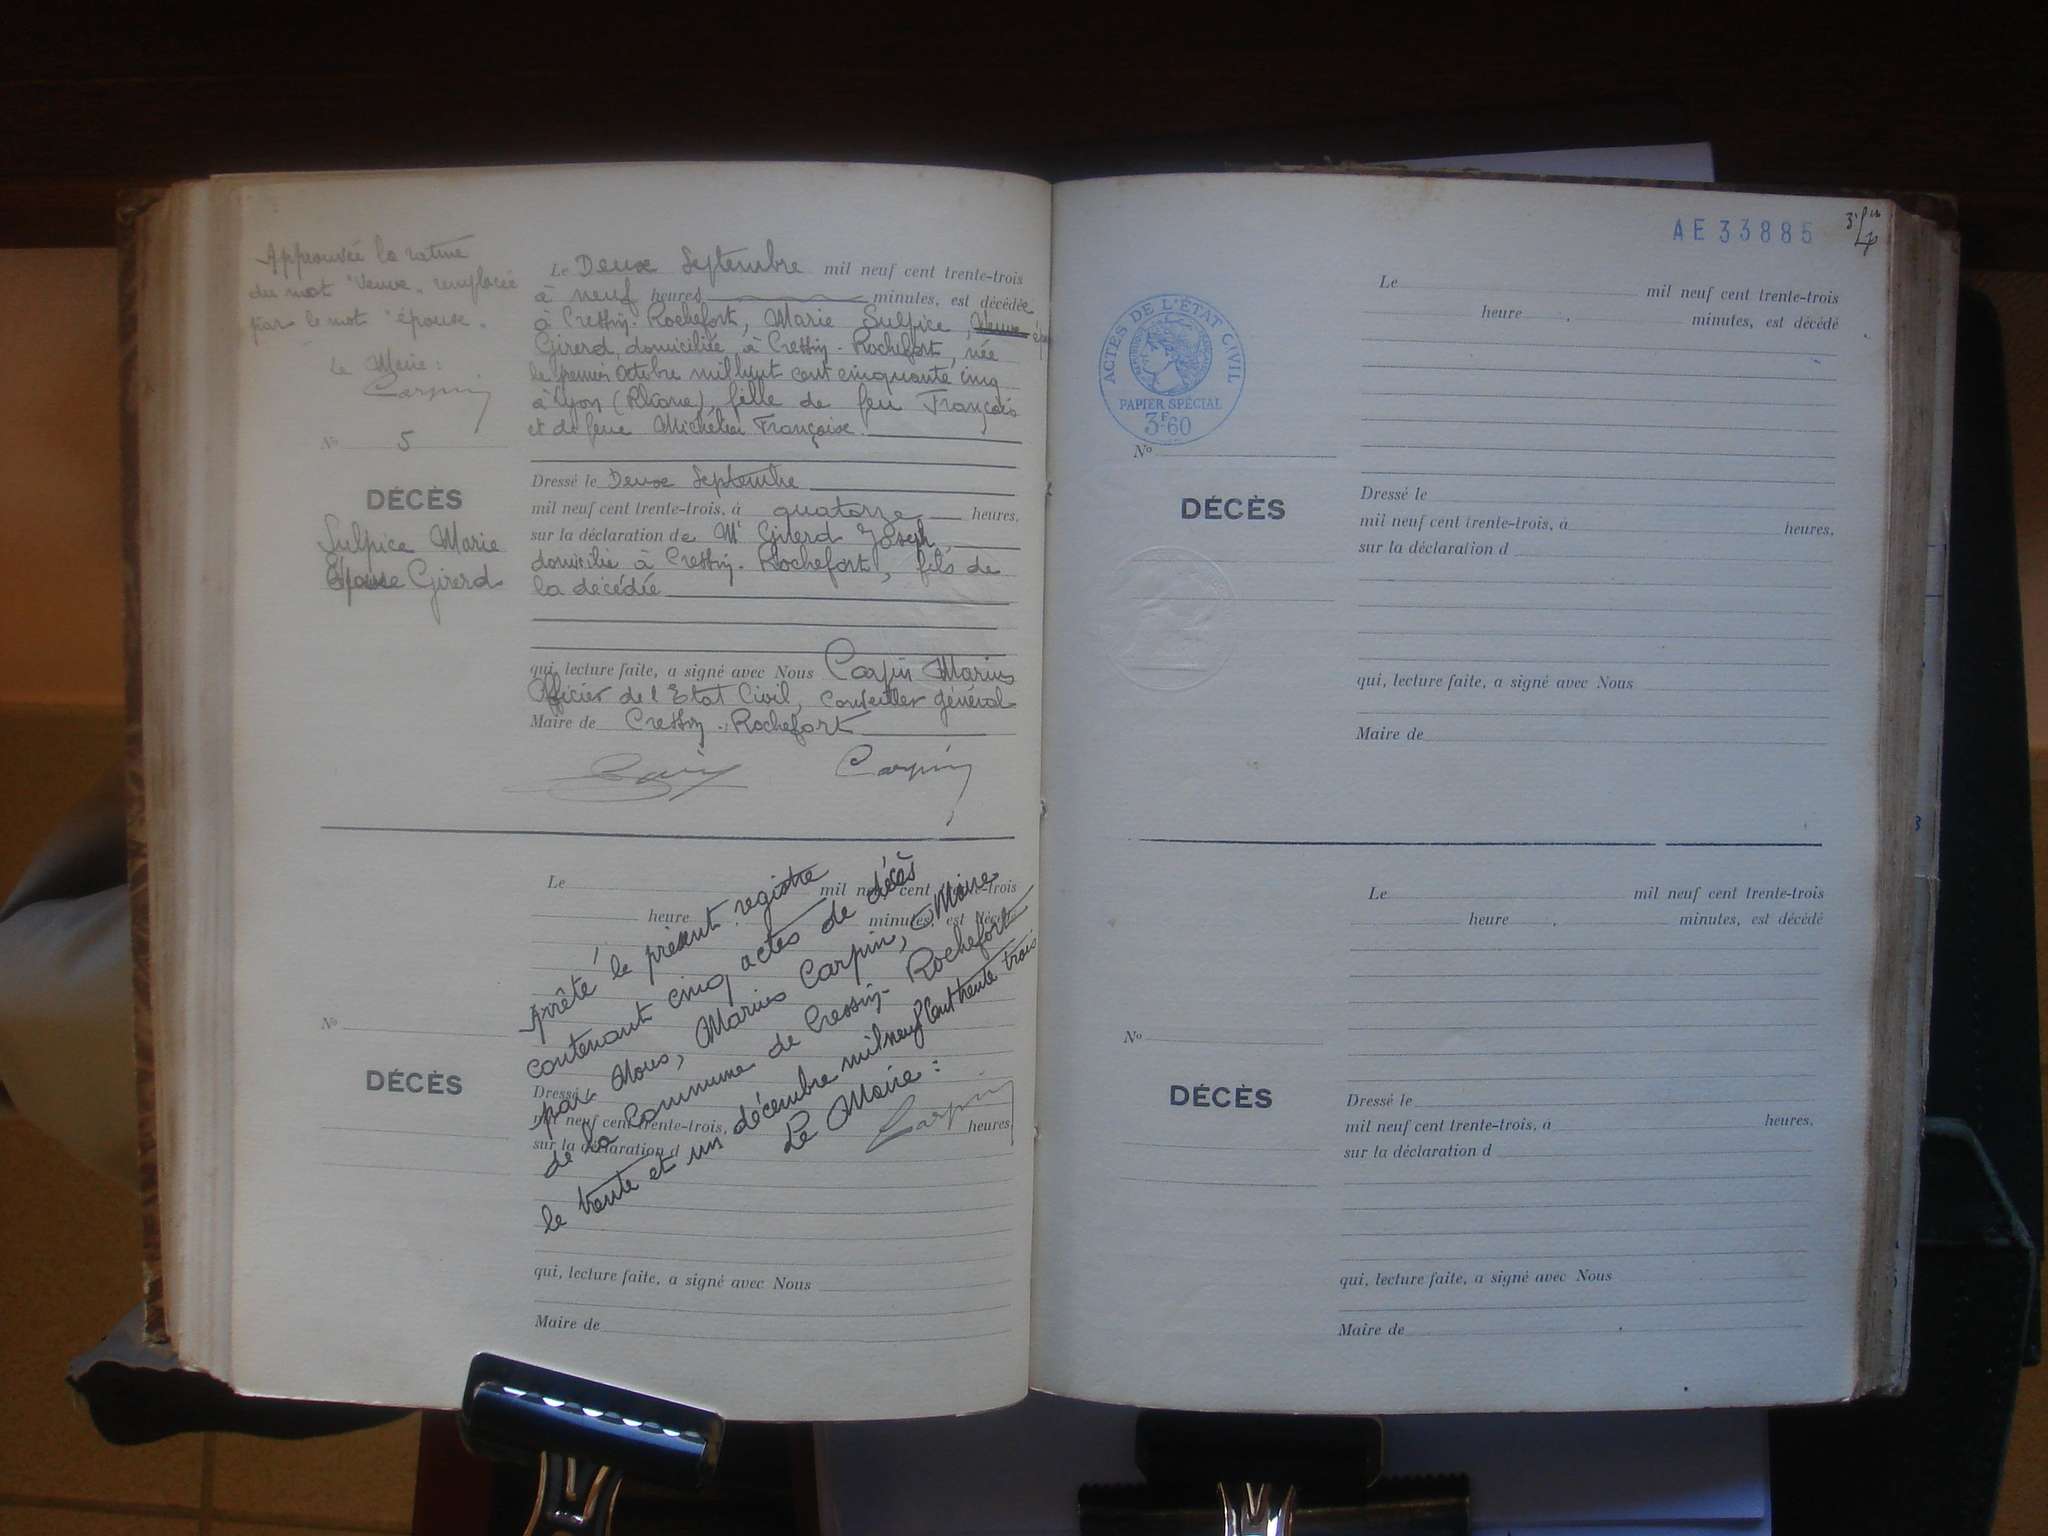 Approuvée la rature
du mot "Veuve" remplacée
par le mot "épouse".
Le Maire:
Carpin
Le Deux Septembre mil neuf cent trente-trois
à neuf heures minutes, est décédée
à Cressin-Rochefort, Marie Sulpice, Veuve
Girerd, domiciliée à Cressin-Rochefort, née
le premier Octobre mil huit cent cinquante cinq
à Lyon (Rhône), fille de feu François
et de feue Françoise.
Nº 5
DÉCÈS
Sulpice Marie
Epouse Girerd
Dressé le Deux Septembre
mil neuf cent trente-trois, à quatorze heures,
sur la déclaration de Mr Girerd Joseph,
domicilié à Cressin-Rochefort, fils de
la décédée
qui, lecture faite, a signé avec Nous Carpin Marius
Officier de l'Etat Civil, Conseiller général
Maire de Cressin-Rochefort
Carpin
Le mil neuf cent trente-trois
heure minutes, est décédé
Nº
DÉCÈS
Dressé le
mil neuf cent trente-trois, heures,
sur la déclaration d
qui, lecture faite, a signé avec Nous
Maire de
Arrêté le présent registre
contenant cinq actes de décès
par Nous, Marius Carpin, Maire
de la Commune de Cressin-Rochefort
le trente et un décembre mil neuf cent trente trois
Le Maire:
Carpin
AE 33885
ACTES DE L'ETAT CIVIL
PAPIER SPÉCIAL
3F60
Le mil neuf cent trente-trois
heure minutes, est décédé
Nº
DÉCÈS
Dressé le
mil neuf cent trente-trois, à heures,
sur la déclaration d
qui, lecture faite, a signé avec Nous
Maire de
Le mil neuf cent trente-trois
heure minutes, est décédé
Nº
DÉCÈS
Dressé le
mil neuf cent trente-trois, à heures,
sur la déclaration d
qui, lecture faite, a signé avec Nous
Maire de